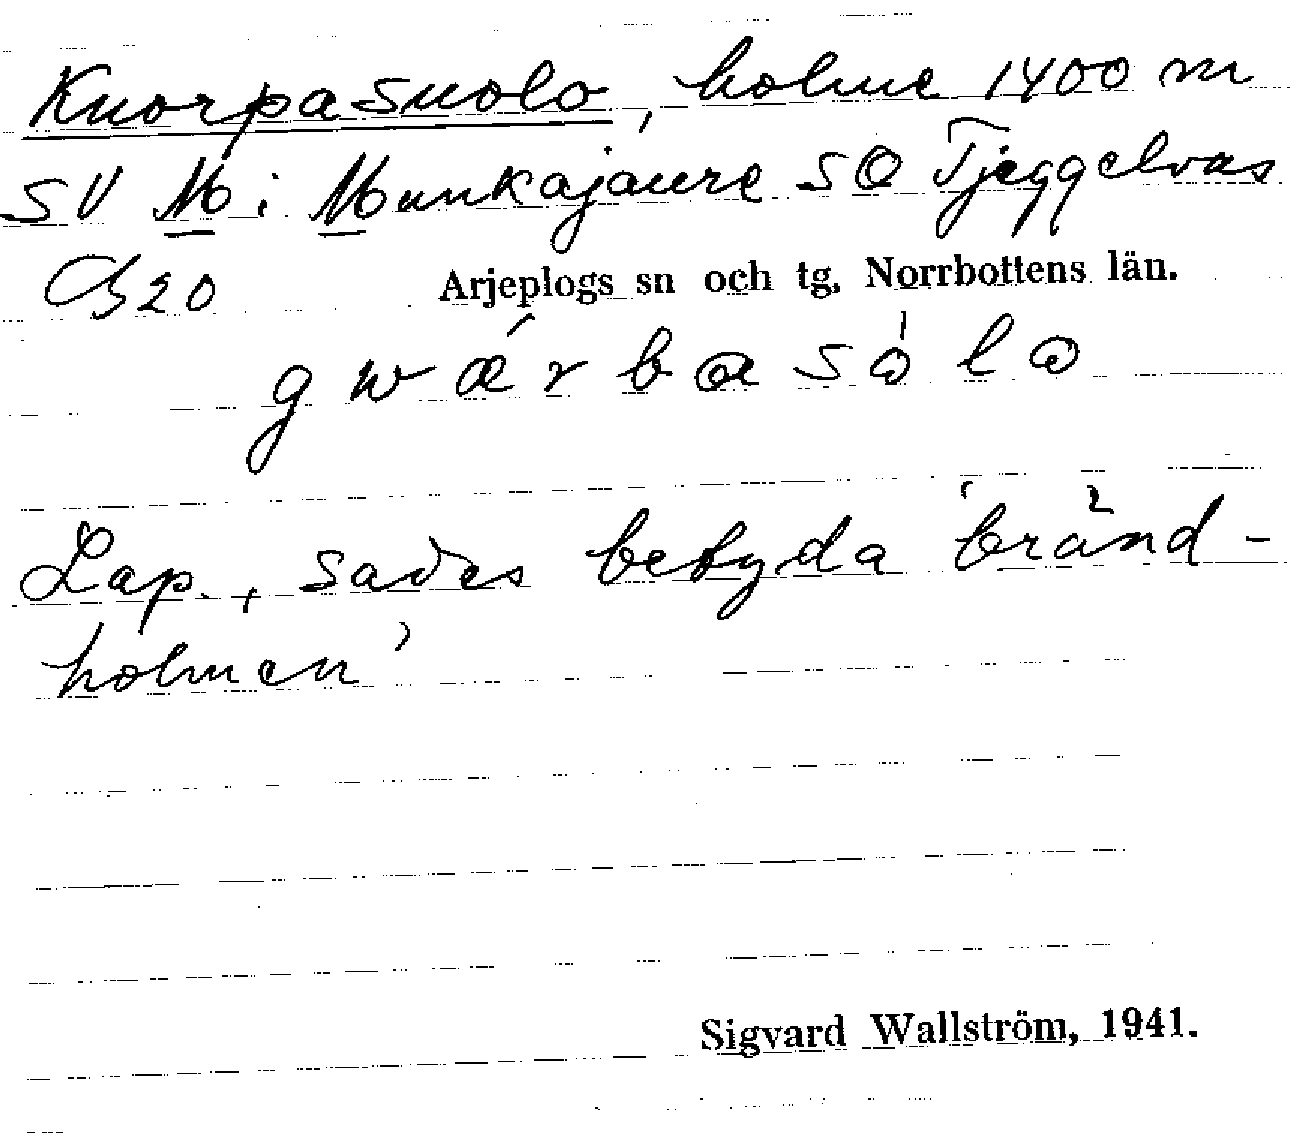 Kuorpasuolo, holme 1400 m
SV M i Munkajaure SO Tjeggelvas
Cb20 Arjeplogs sn och tg. Norrbottens län.
g w ǽ r b a s ȧ l a
Lap., sades betyda 'bränd-
holmen'
Sigvard Wallström, 1941.